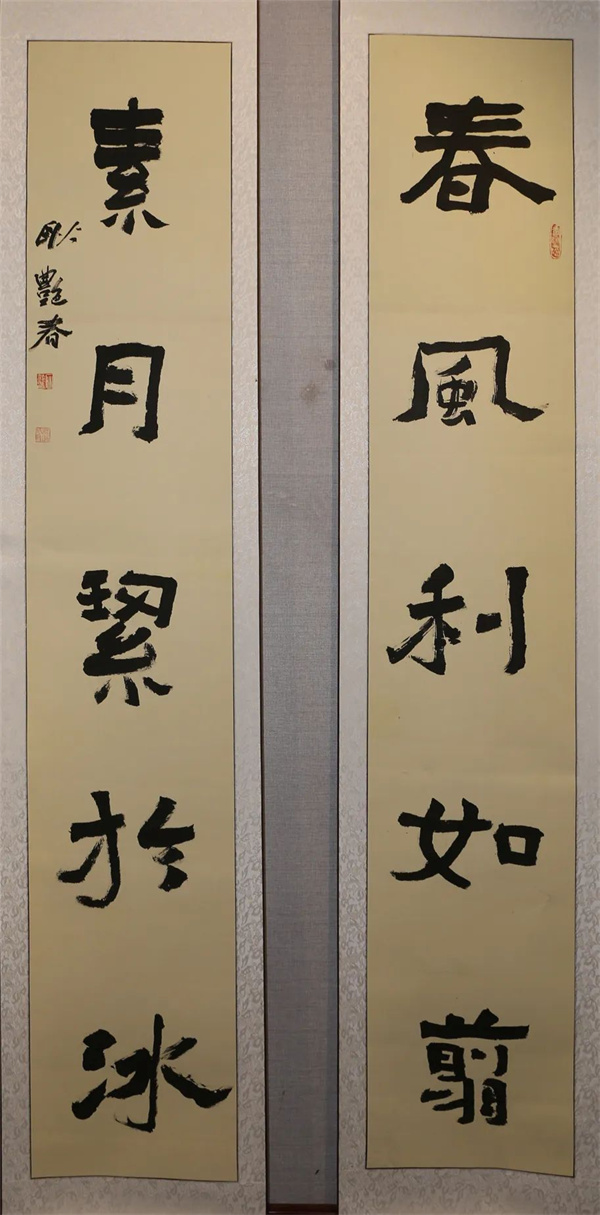 春風利如翦
素月絜於冰
艷春